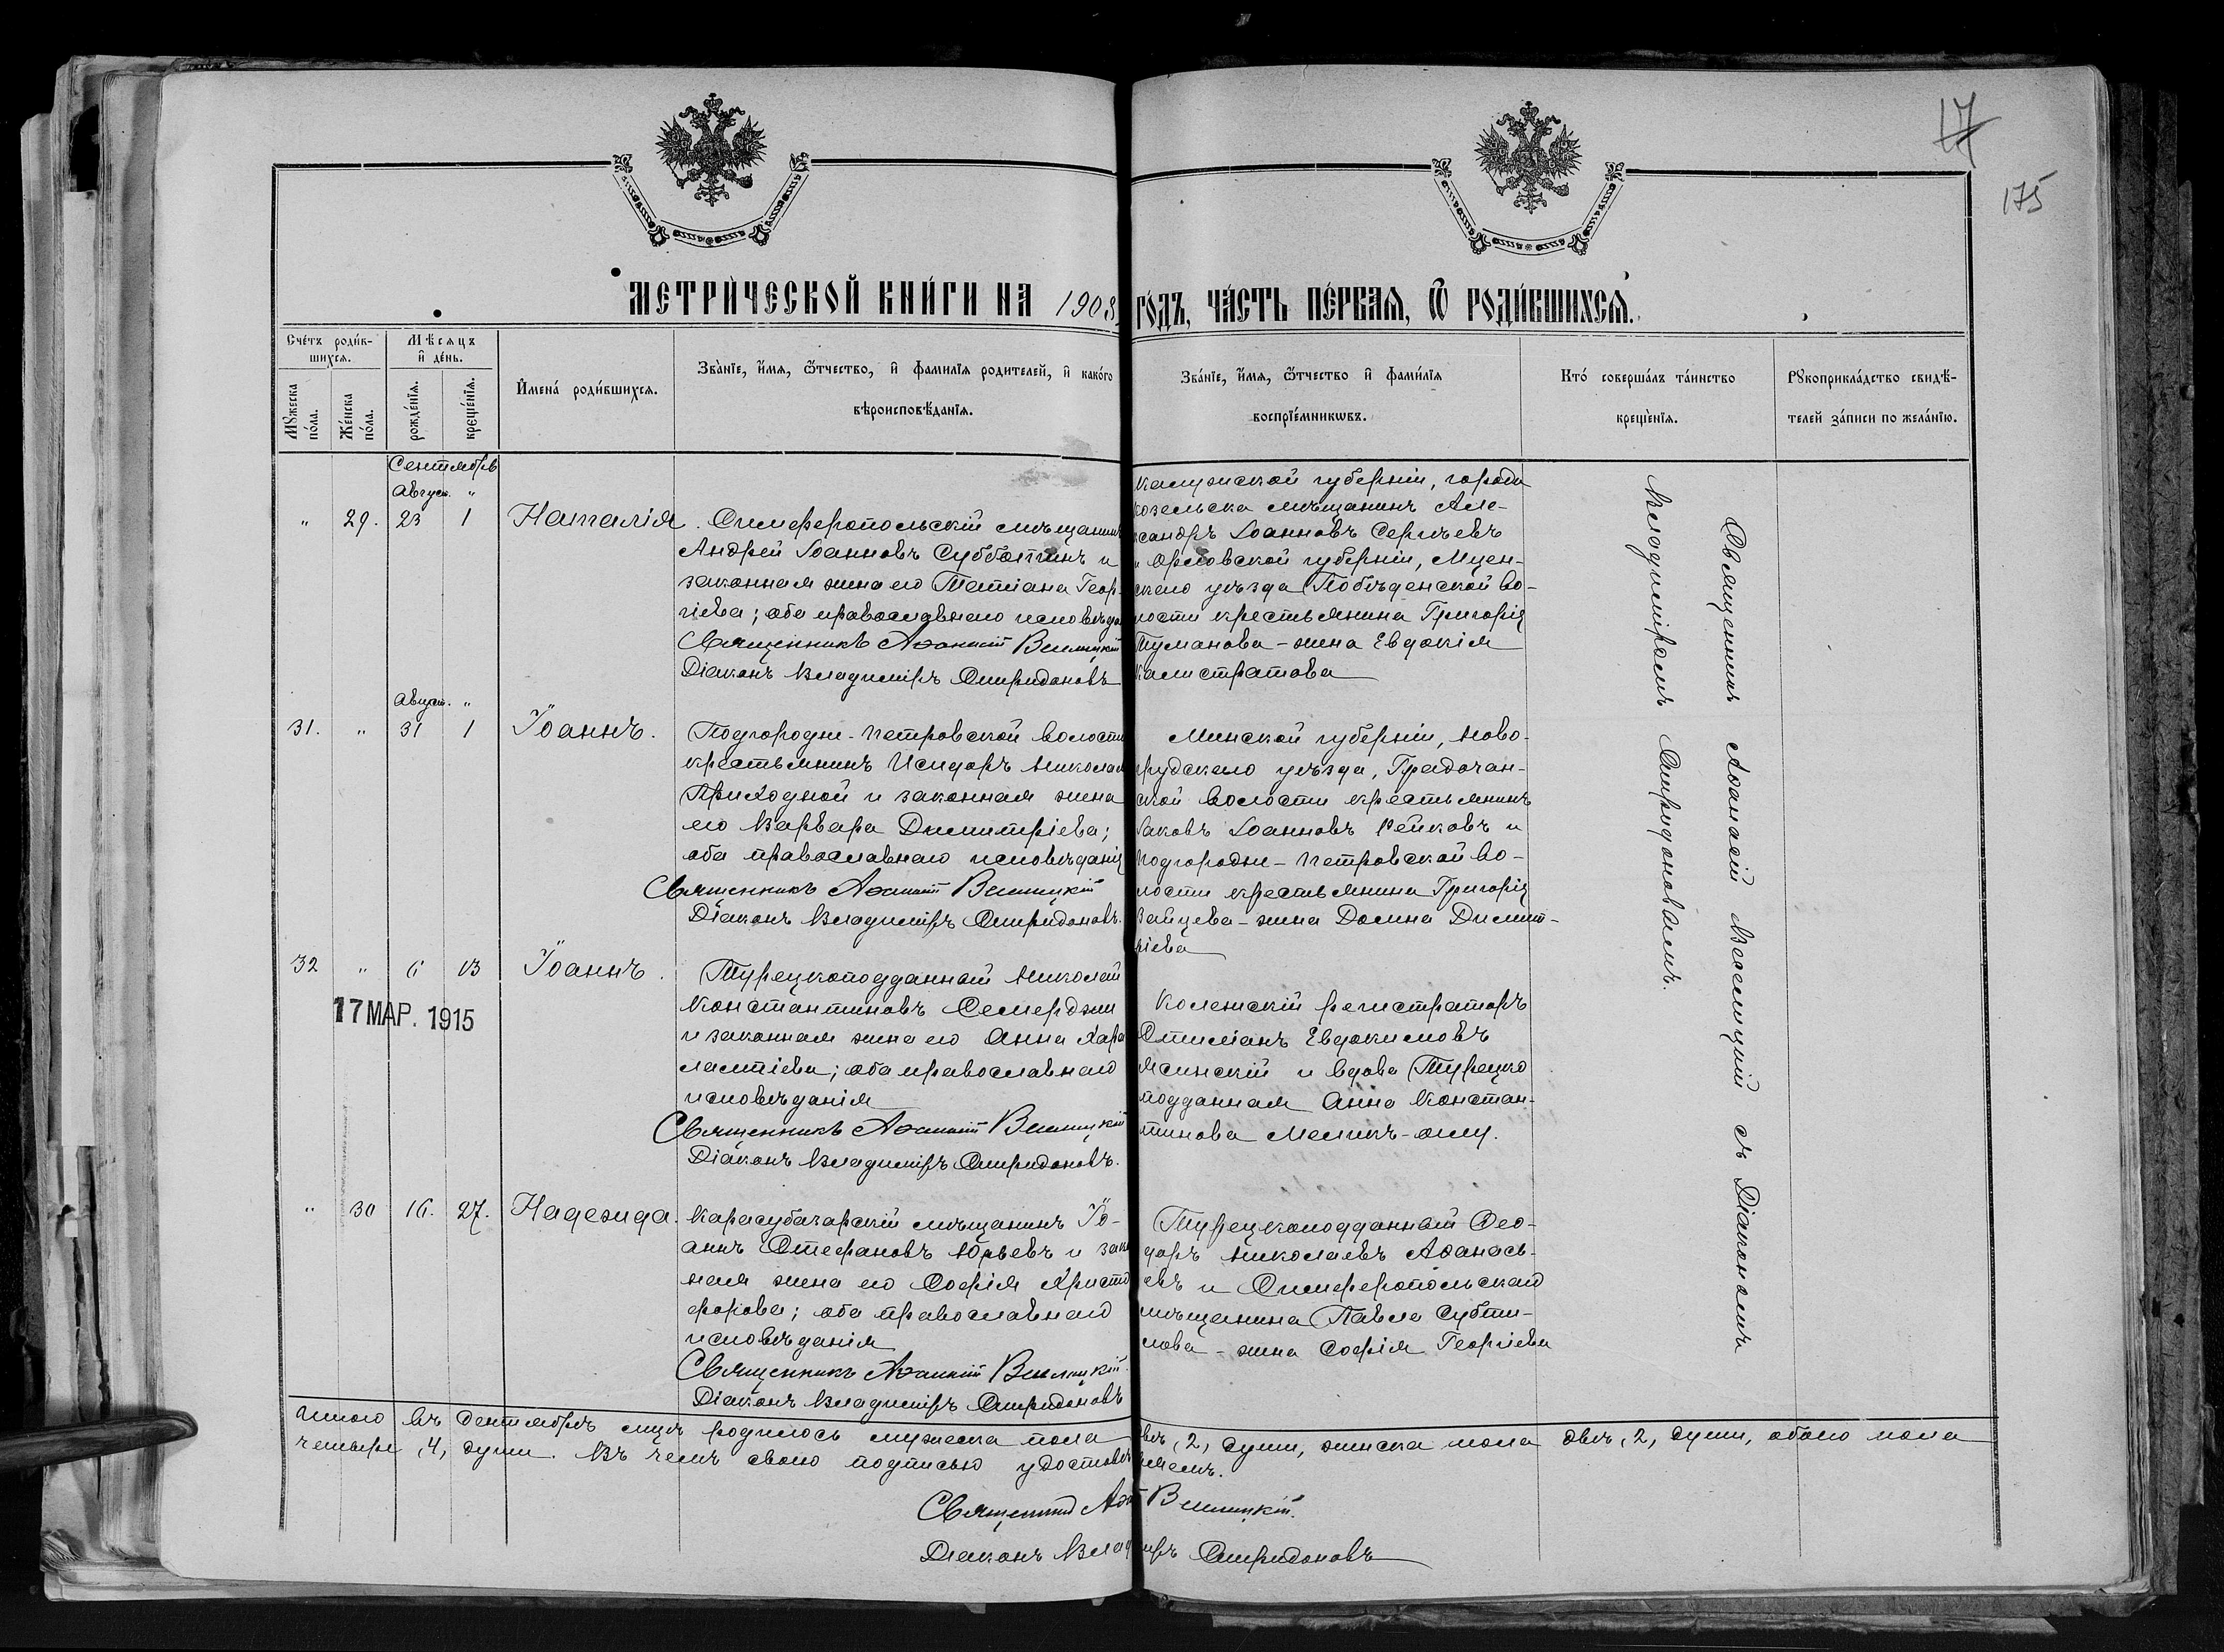 17
175
МЕТРИ́ЧЕСКОЙ КНИ́ГИ НА 1908 ГО́ДЪ, ЧА́СТЬ ПЕ́РВАЯ, Ѽ РОДИ́ВШИХСЯ.
Сче́тъ роди́в-
шихся.
Мѣсяцъ
и де́нь.
Мꙋжеска
по́ла.
Же́нска
по́ла.
рожде́нїя.
креще́нїя.
И҆мена́ роди́вшихся.
Зва́нїе, и҆́мя, ѻ҆́тчество, и҆ фамилїя родителей, и҆ како́го
вѣроисповѣ́данїя.
Зва́нїе, и҆́мя, ѻ҆́тчество и҆ фами́лїя
воспрїе́мникѡвъ.
Кто́ соверша́лъ та́инство
креще́нїя.
Рꙋкоприкла́дство свидѣ́-
телей за́писи по жела́нїю.
Сентябрь
Август. "
" 29. 23 1 Наталія.
Симферопольскій мѣщанинъ
Андрей Іоанновъ Субботинъ и
законная жена его Татіана Геор-
гіева; оба православнаго исповѣдан
Священникъ Аѳанасій Веселицкій
Діаконъ Владиміръ Спиридоновъ
Калужской губерніи, города
Козельска мѣщанинъ Але-
ксандръ Іоанновъ Сергѣевъ
и Орловской губерніи, Мцен-
скаго уѣзда Побѣденской во-
лости крестьянина Григорія
Туманова - жена Евдокія
Калистратова
Август. "
31. " 31 1 Іоаннъ.
Подгородне-Петровской волости
крестьянинъ Исидоръ Николаев
Приходной и законная жена
его Варвара Димитріева;
оба православнаго исповѣданія
Священникъ Аѳанасій Веселицкій
Діаконъ Владиміръ Спиридоновъ.
Минской губерніи, Ново-
грудскаго уѣзда, Градочан-
ской волости крестьянинъ
Іаковъ Іоанновъ Рейковъ и
Подгородне-Петровской во-
лости крестьянина Григорія
Зайцева - жена Домна Димит-
ріева
32 " 6 13 Іоаннъ.
Турецкоподданный Николай
Константиновъ Семерджи
и законная жена его Анна Хара
лампіева; оба православнаго
исповѣданія
Священникъ Аѳанасій Веселицкій
Діаконъ Владиміръ Спиридоновъ.
17 МАР. 1915
Колежскій регистраторъ
Стиліанъ Евдокимовъ
Ясинскій и вдова Турецко
подданная Анна Констан-
тинова Меликъ-оглу.
" 30 16. 27. Надежда.
Карасубазарскій мѣщанинъ Іо-
аннъ Стефановъ Юрьевъ и зако
ная жена его Софія Христо
форова; оба православнаго
исповѣданія
Священникъ Аѳанасій Веселицкій
Діаконъ Владиміръ Спиридоновъ
Турецкоподданный Ѳео-
доръ Николаевъ Аѳанась-
евъ и Симферопольскаго
мѣщанина Павла Субти-
лова - жена Софія Георгіева
Священникъ Аѳанасій Веселицкій съ Діакономъ
Владиміромъ Спиридоновымъ.
Итого въ Сентябрѣ мцѣ родилось мужеска пола двѣ, 2, души, женска пола двѣ, 2, души, обоего пола
четыре, 4, души. Въ чемъ своею подписью удостовѣряемъ.
Священникъ Аѳан Веселицкій.
Діаконъ Владиміръ Спиридоновъ